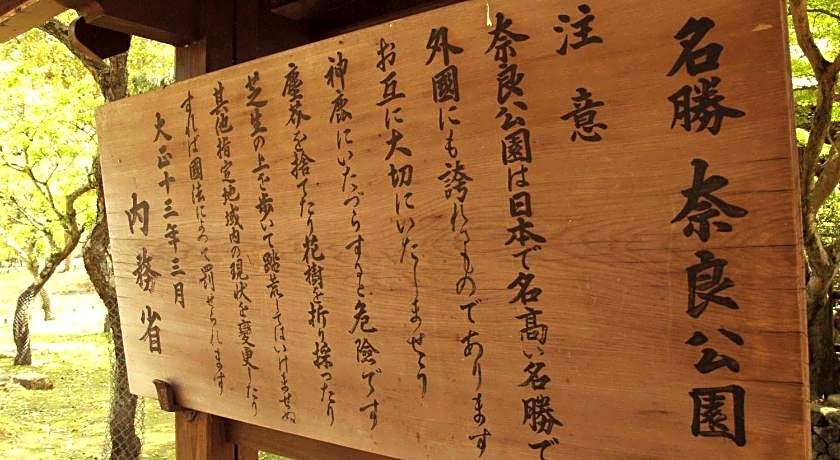 名勝 奈良公園
注意
奈良公園は日本で名高い名勝で
外國にも誇れるものであります
お互に大切にいたしませう
神鹿にいたづらすると危險です
塵芥を捨てたり花樹を折り採つたり
芝生の上を歩いて踏荒してはいけませぬ
其他指定地域内の現状を変更したり
すれば國法によつて罰せられます
大正十三年三月
内務省